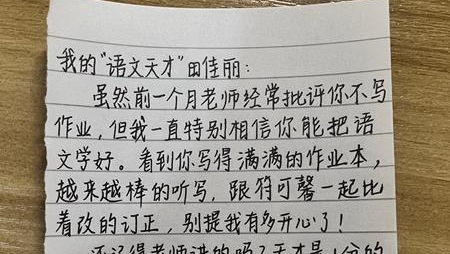 我的“语文天才”田佳丽：
虽然前一个月老师经常批评你不写
作业，但我一直特别相信你能把语
文学好。看到你写得满满的作业本，
越来越棒的听写，跟符可馨一起比
着改的订正，别提我有多开心了！
还记得老师讲的吗？天才是1分的